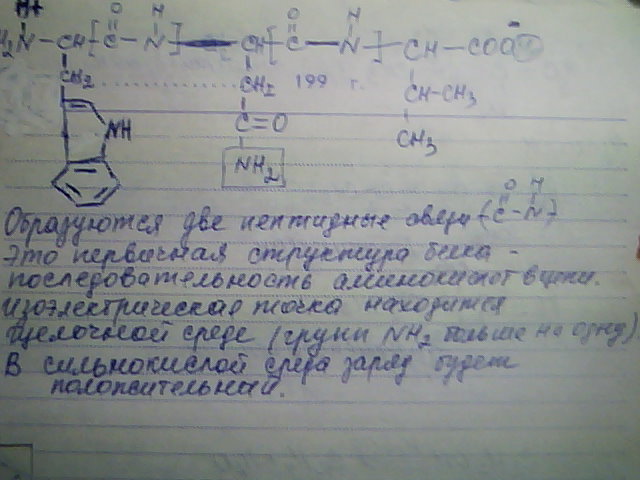 H₂N – CH [ C – N ] – CH [ C – N ] – CH – COO⁻
H⁺ O H O H
CH₂ CH₂ 199 г. CH–CH₃
NH C=O CH₃
NH₂
Образуются две пептидные связи (–C–N–)
O H
Это первичная структура белка –
последовательность аминокислот в цепи.
Изоэлектрическая точка находится
щелочной среде (групп NH₂ больше на одну).
В сильнокислой среда заряд будет
положительный.